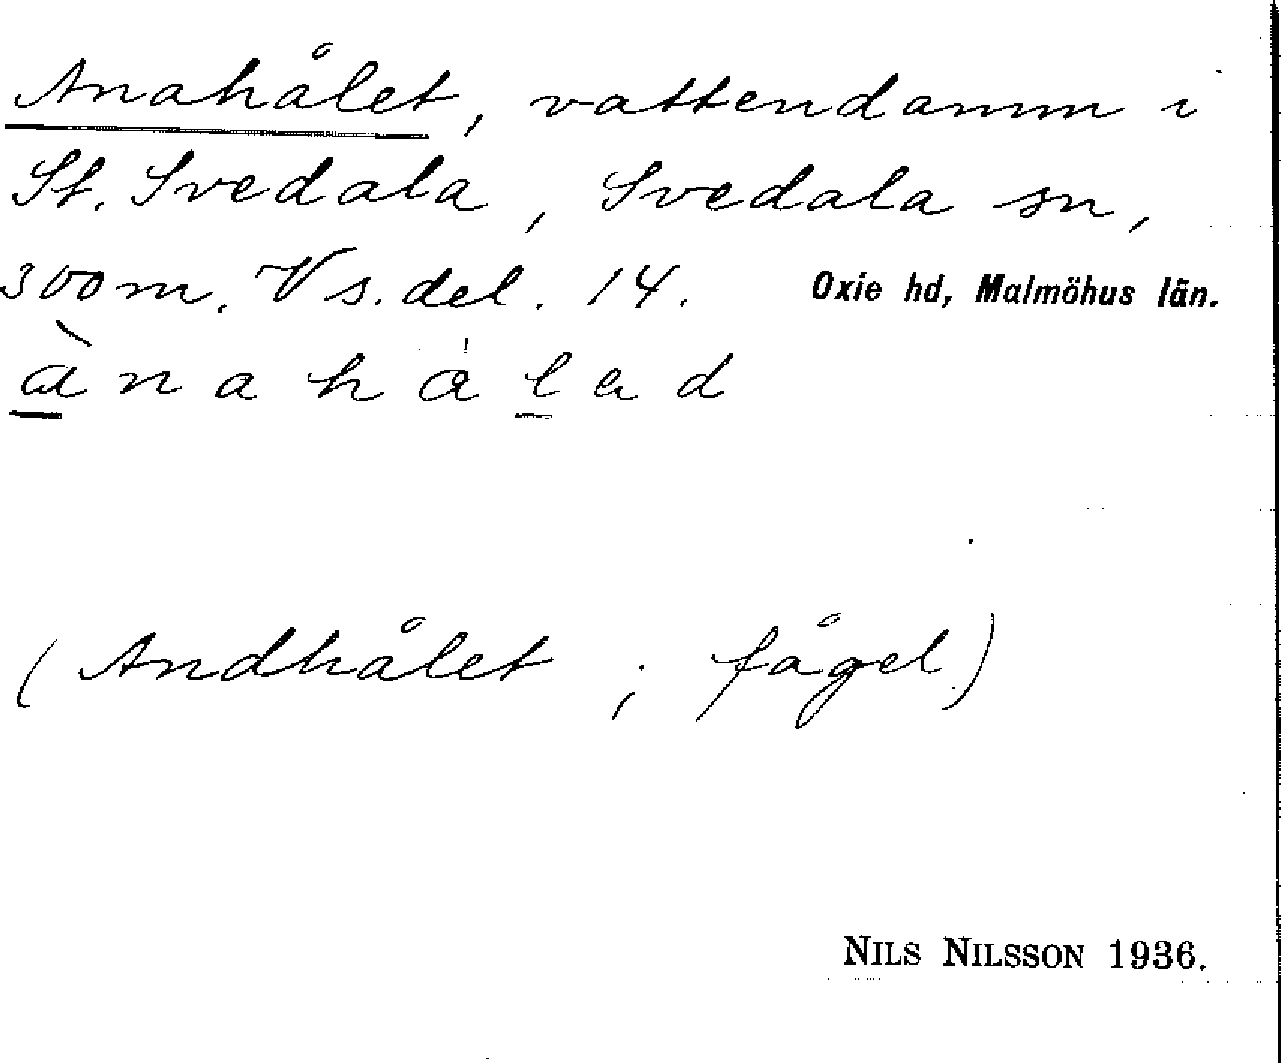 Anahålet, vattendamm i
St. Svedala, Svedala sn,
300 m. V s. del. 14. Oxie hd, Malmöhus län.
ànahålad
(Andhålet ; fågel)
NILS NILSSON 1936.